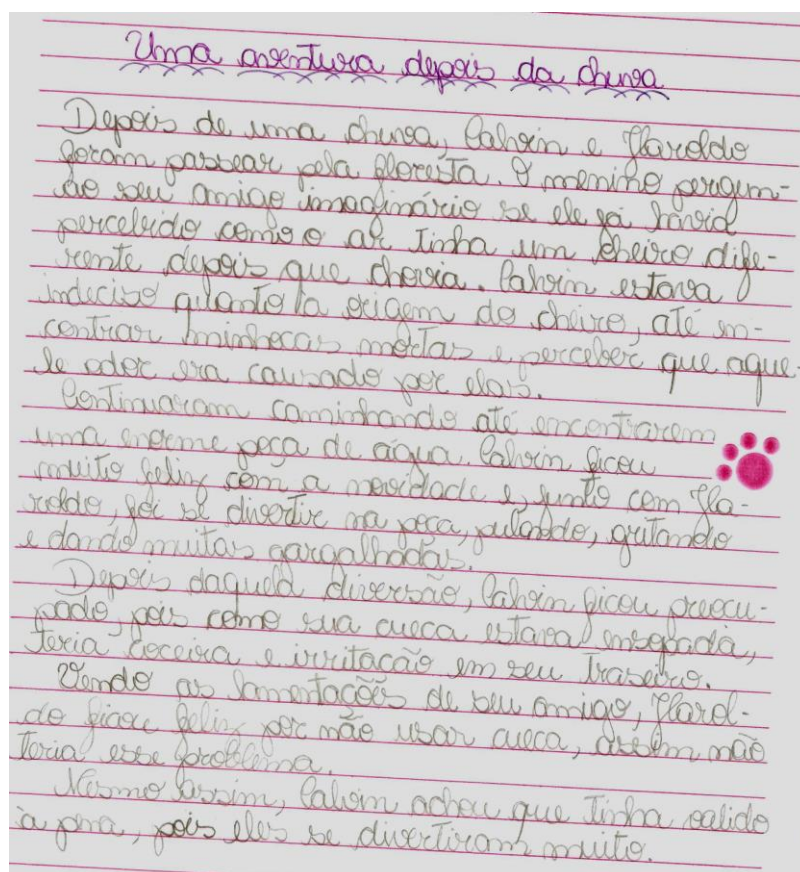 Uma aventura depois da chuva
Depois de uma chuva, Calvin e Haroldo
foram passear pela floresta. O menino pergun-
ao seu amigo imaginário se ele já havia
percebido como o ar tinha um cheiro dife-
rente depois que chovia. Calvin estava
indeciso quanto a origem do cheiro, até en-
contrar minhocas mortas e perceber que aque-
le odor era causado por elas.
Continuaram caminhando até encontrarem
uma enorme poça de água. Calvin ficou
muito feliz com a novidade e, junto com Ha-
roldo, foi se divertir na poça, pulando, gritando
e dando muitas gargalhadas.
Depois daquela diversão, Calvin ficou preocu-
pado, pois como sua cueca estava ensopada,
teria coceira e irritação em seu traseiro.
Vendo as lamentações de seu amigo, Harol-
do ficou feliz por não usar cueca, assim não
teria esse problema.
Mesmo assim, Calvin achou que tinha valido
a pena, pois eles se divertiram muito.